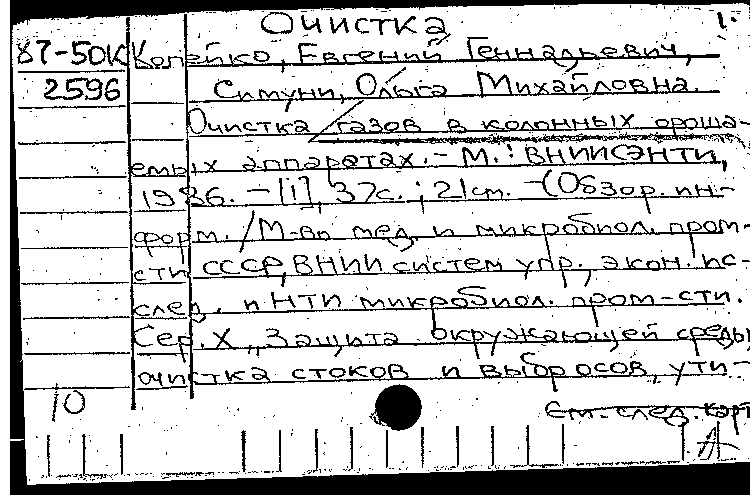 Очистка 1.
87-50К Копейко, Евгений Геннадьевич,
2596 Симуни, Ольга Михайловна.
Очистка газов в колонных ороша-
емых аппаратах. - М. : ВНИИСЭНТИ,
1986. - [1], 37с. ; 21см. - (Обзор. ин-
форм. / М-во мед. и микробиол. пром-
сти СССР, ВНИИ систем упр., экон. ис-
след. и НТИ микробиол. пром-сти.
Сер. X, „Защита окружающей среды,
очистка стоков и выбросов, ути-
10
См. след. карт